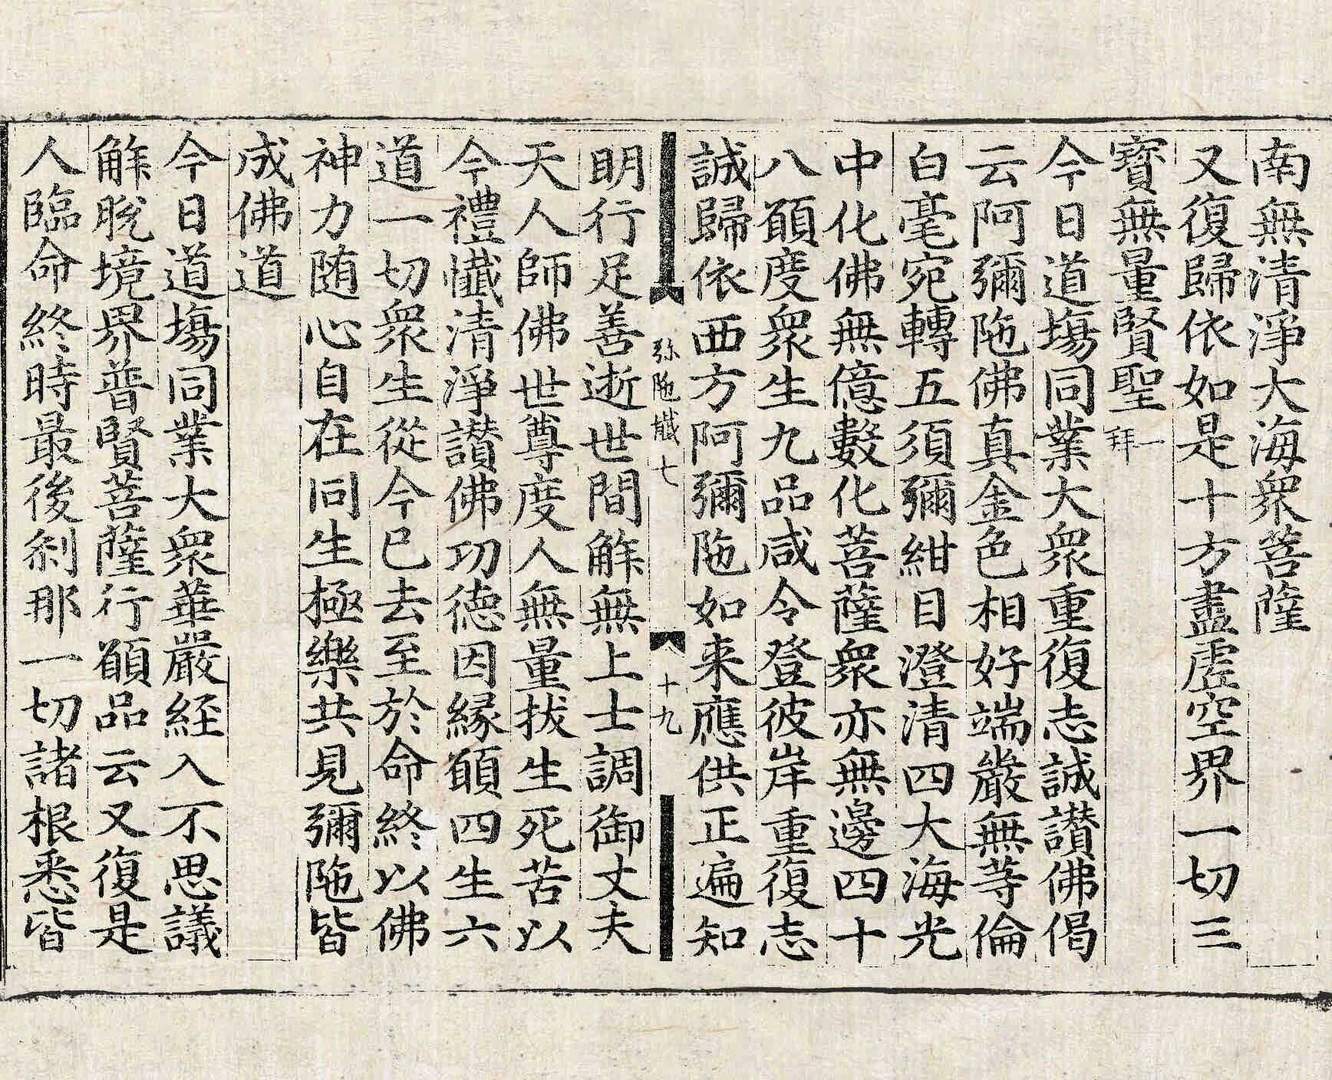 南無清淨大海衆菩薩
又復歸依如是十方盡虛空界一切三
寶無量賢聖 一拜
今日道塲同業大衆重復志誠讃佛偈
云阿彌陁佛真金色相好端嚴無等倫
白毫宛轉五須彌紺目澄清四大海光
中化佛無億數化菩薩衆亦無邊四十
八願度衆生九品咸令登彼岸重復志
誠歸依西方阿彌陁如来應供正遍知
弥陁懺七 十九
明行足善逝世間解無上士調御丈夫
天人師佛世尊度人無量拔生死苦以
今禮懺清淨讃佛功德因緣願四生六
道一切衆生從今已去至於命終以佛
神力随心自在同生極樂共見彌陁皆
成佛道
今日道塲同業大衆華嚴経入不思議
解脫境界普賢菩薩行願品云又復是
人臨命終時最後刹那一切諸根悉皆